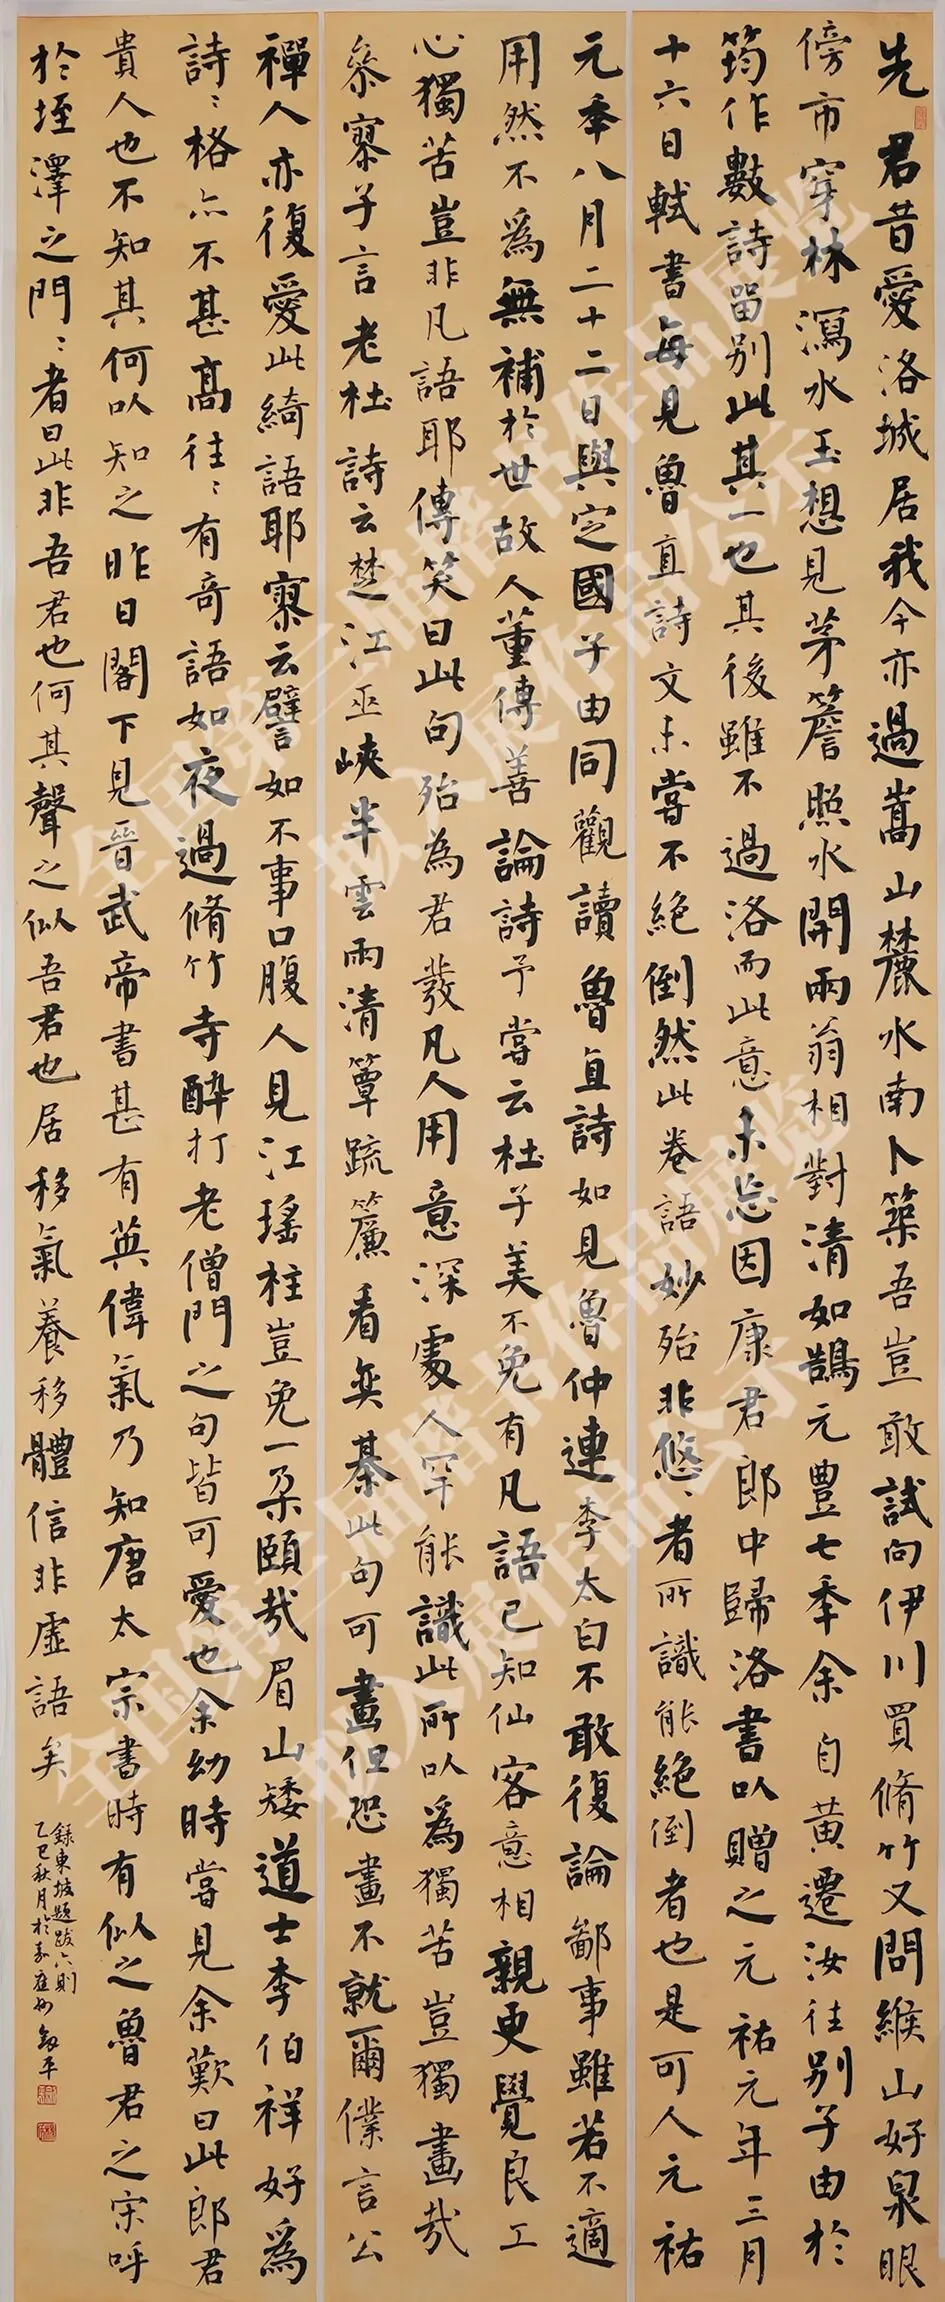 先君昔愛洛城居我今亦過嵩山麓水南卜築吾豈敢試向伊川買脩竹又問緱山好泉眼
傍市穿林瀉水玉想見茅簷照水開兩翁相對清如鵠元豐七季余自黃遷汝往别子由於
筠作數詩留别此其一也其後雖不過洛而此意未忘因康君郎中歸洛書以贈之元祐元年三月
十六日軾書每見魯直詩文未嘗不絶倒然此卷語妙殆非悠〻者所識能絶倒者也是可人元祐
元季八月二十二日與定國子由同觀讀魯直詩如見魯仲連李太白不敢復論鄙事雖若不適
用然不爲無補於世故人董傳善論詩予嘗云杜子美不免有凡語已知仙客意相親更覺良工
心獨苦豈非凡語耶傳笑曰此句殆為君發凡人用意深處人罕能識此所以爲獨苦豈獨畫哉
叅寥子言老杜詩云楚江巫峽半雲雨清簟疏簾看弈棊此句可畫但恐畫不就爾僕言公
禪人亦復愛此綺語耶寥云譬如不事口腹人見江瑤柱豈免一朶頤哉眉山矮道士李伯祥好爲
詩〻格亦不甚高往〻有奇語如夜過脩竹寺醉打老僧門之句皆可愛也余幼時嘗見余歎曰此郎君
貴人也不知其何以知之昨日閣下見晉武帝書甚有英偉氣乃知唐太宗書時有似之魯君之宋呼
於垤澤之門〻者曰此非吾君也何其聲之似吾君也居移氣養移體信非虛語矣
録東坡題跋六則
乙巳秋月於嘉應州
全国第三届楷书作品展览
拟入展作品公示
全国第三届楷书作品展览
拟入展作品公示